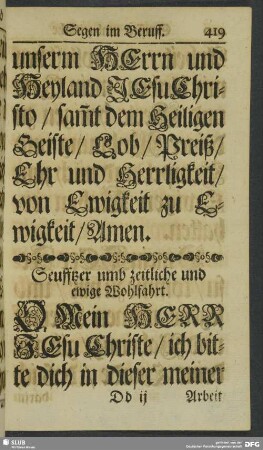 Segen im Beruff. 419
unserm HErrn und
Heyland JEsu Chri-
sto / sam̃t dem Heiligen
Geiste / Lob / Preiß /
Ehr und Herrligkeit /
von Ewigkeit zu E-
wigkeit / Amen.
Seufftzer umb zeitliche und
ewige Wohlfahrt.
O Mein HERR
JEsu Christe / ich bit-
te dich in dieser meiner
Dd ij Arbeit
SLUB
DFG